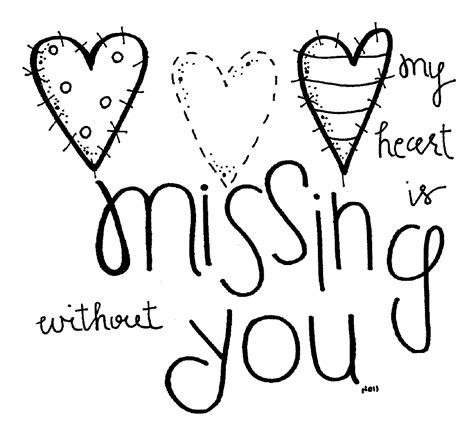 my
heart
is
missing
without
you